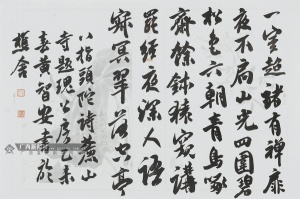 一室超諸有禪扉
夜不扃山光四圍碧
松色六朝青鳥啄
齋餘鉢猿窺講
罷經夜深人語
寂冥翠落空亭
八指頭陀詩廬山
寺題現公房乙未
春黃智安書於
樵舍